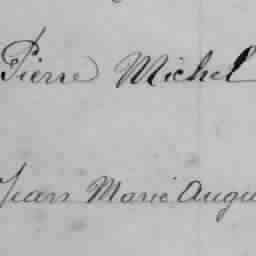 Pierre Michel
Jean Marie Augu